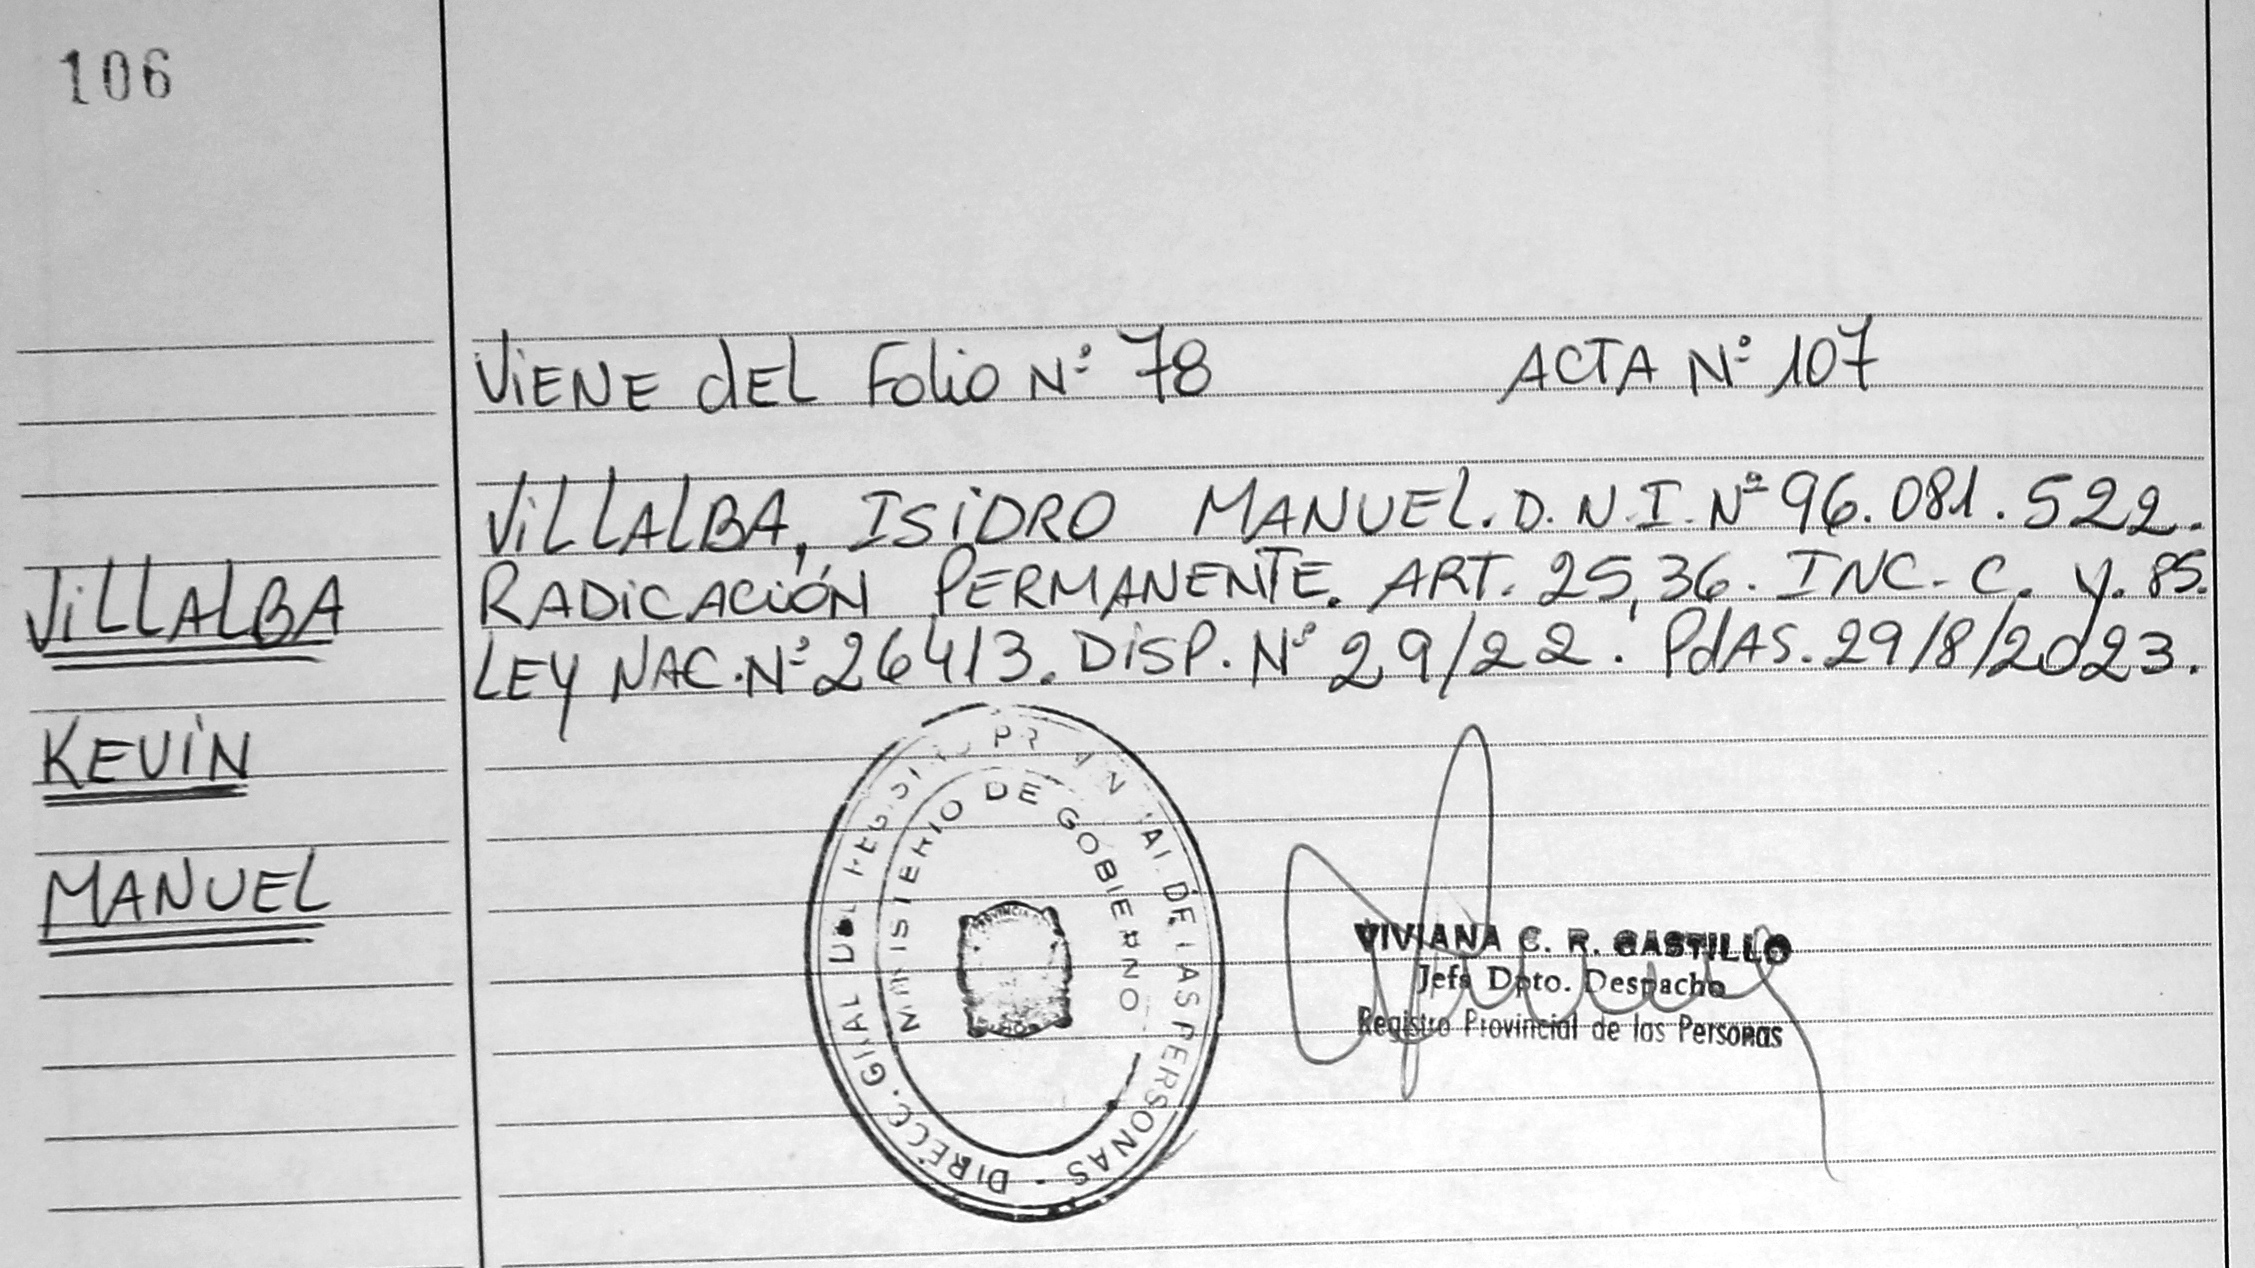 106
ViENE dEL Folio Nº 78 ACTA Nº 107
ViLLALBA, ISiDRO MANUEL. D.N.I. Nº 96.081.522.
RADiCACiÓN PERMANENTE. ART. 25,36. INC. C. y. 85.
LEY NAC. Nº 26413. DiSP. Nº 29/22. PdAS. 29/8/2023.
ViLLALBA
KEViN
MANUEL
DIRECC. GRAL DEL REGISTRO PROVINCIAL DE LAS PERSONAS -
MINISTERIO DE GOBIERNO
VIVIANA C. R. CASTILLO
Jefa Dpto. Despacho
Registro Provincial de las Personas